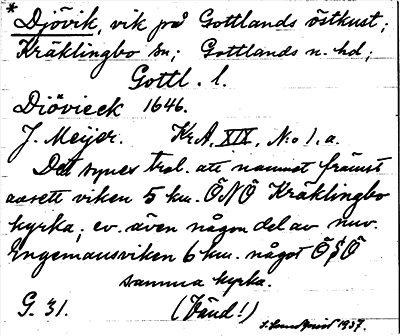 * Djövik, vik på Gottlands östkust;
Kräklingbo sn; Gottlands n. hd;
Gottl. l.
Diövieck 1646.
J. Meijer. KrA, XIX, N:o 1, a.
Det synes trol. att namnet främst
avsett viken 5 km. ÖNÖ Kräklingbo
kyrka; ev. även någon del av nuv.
Engemansviken 6 km. något ÖSÖ
samma kyrka.
G. 31. (Vänd!) 1937.